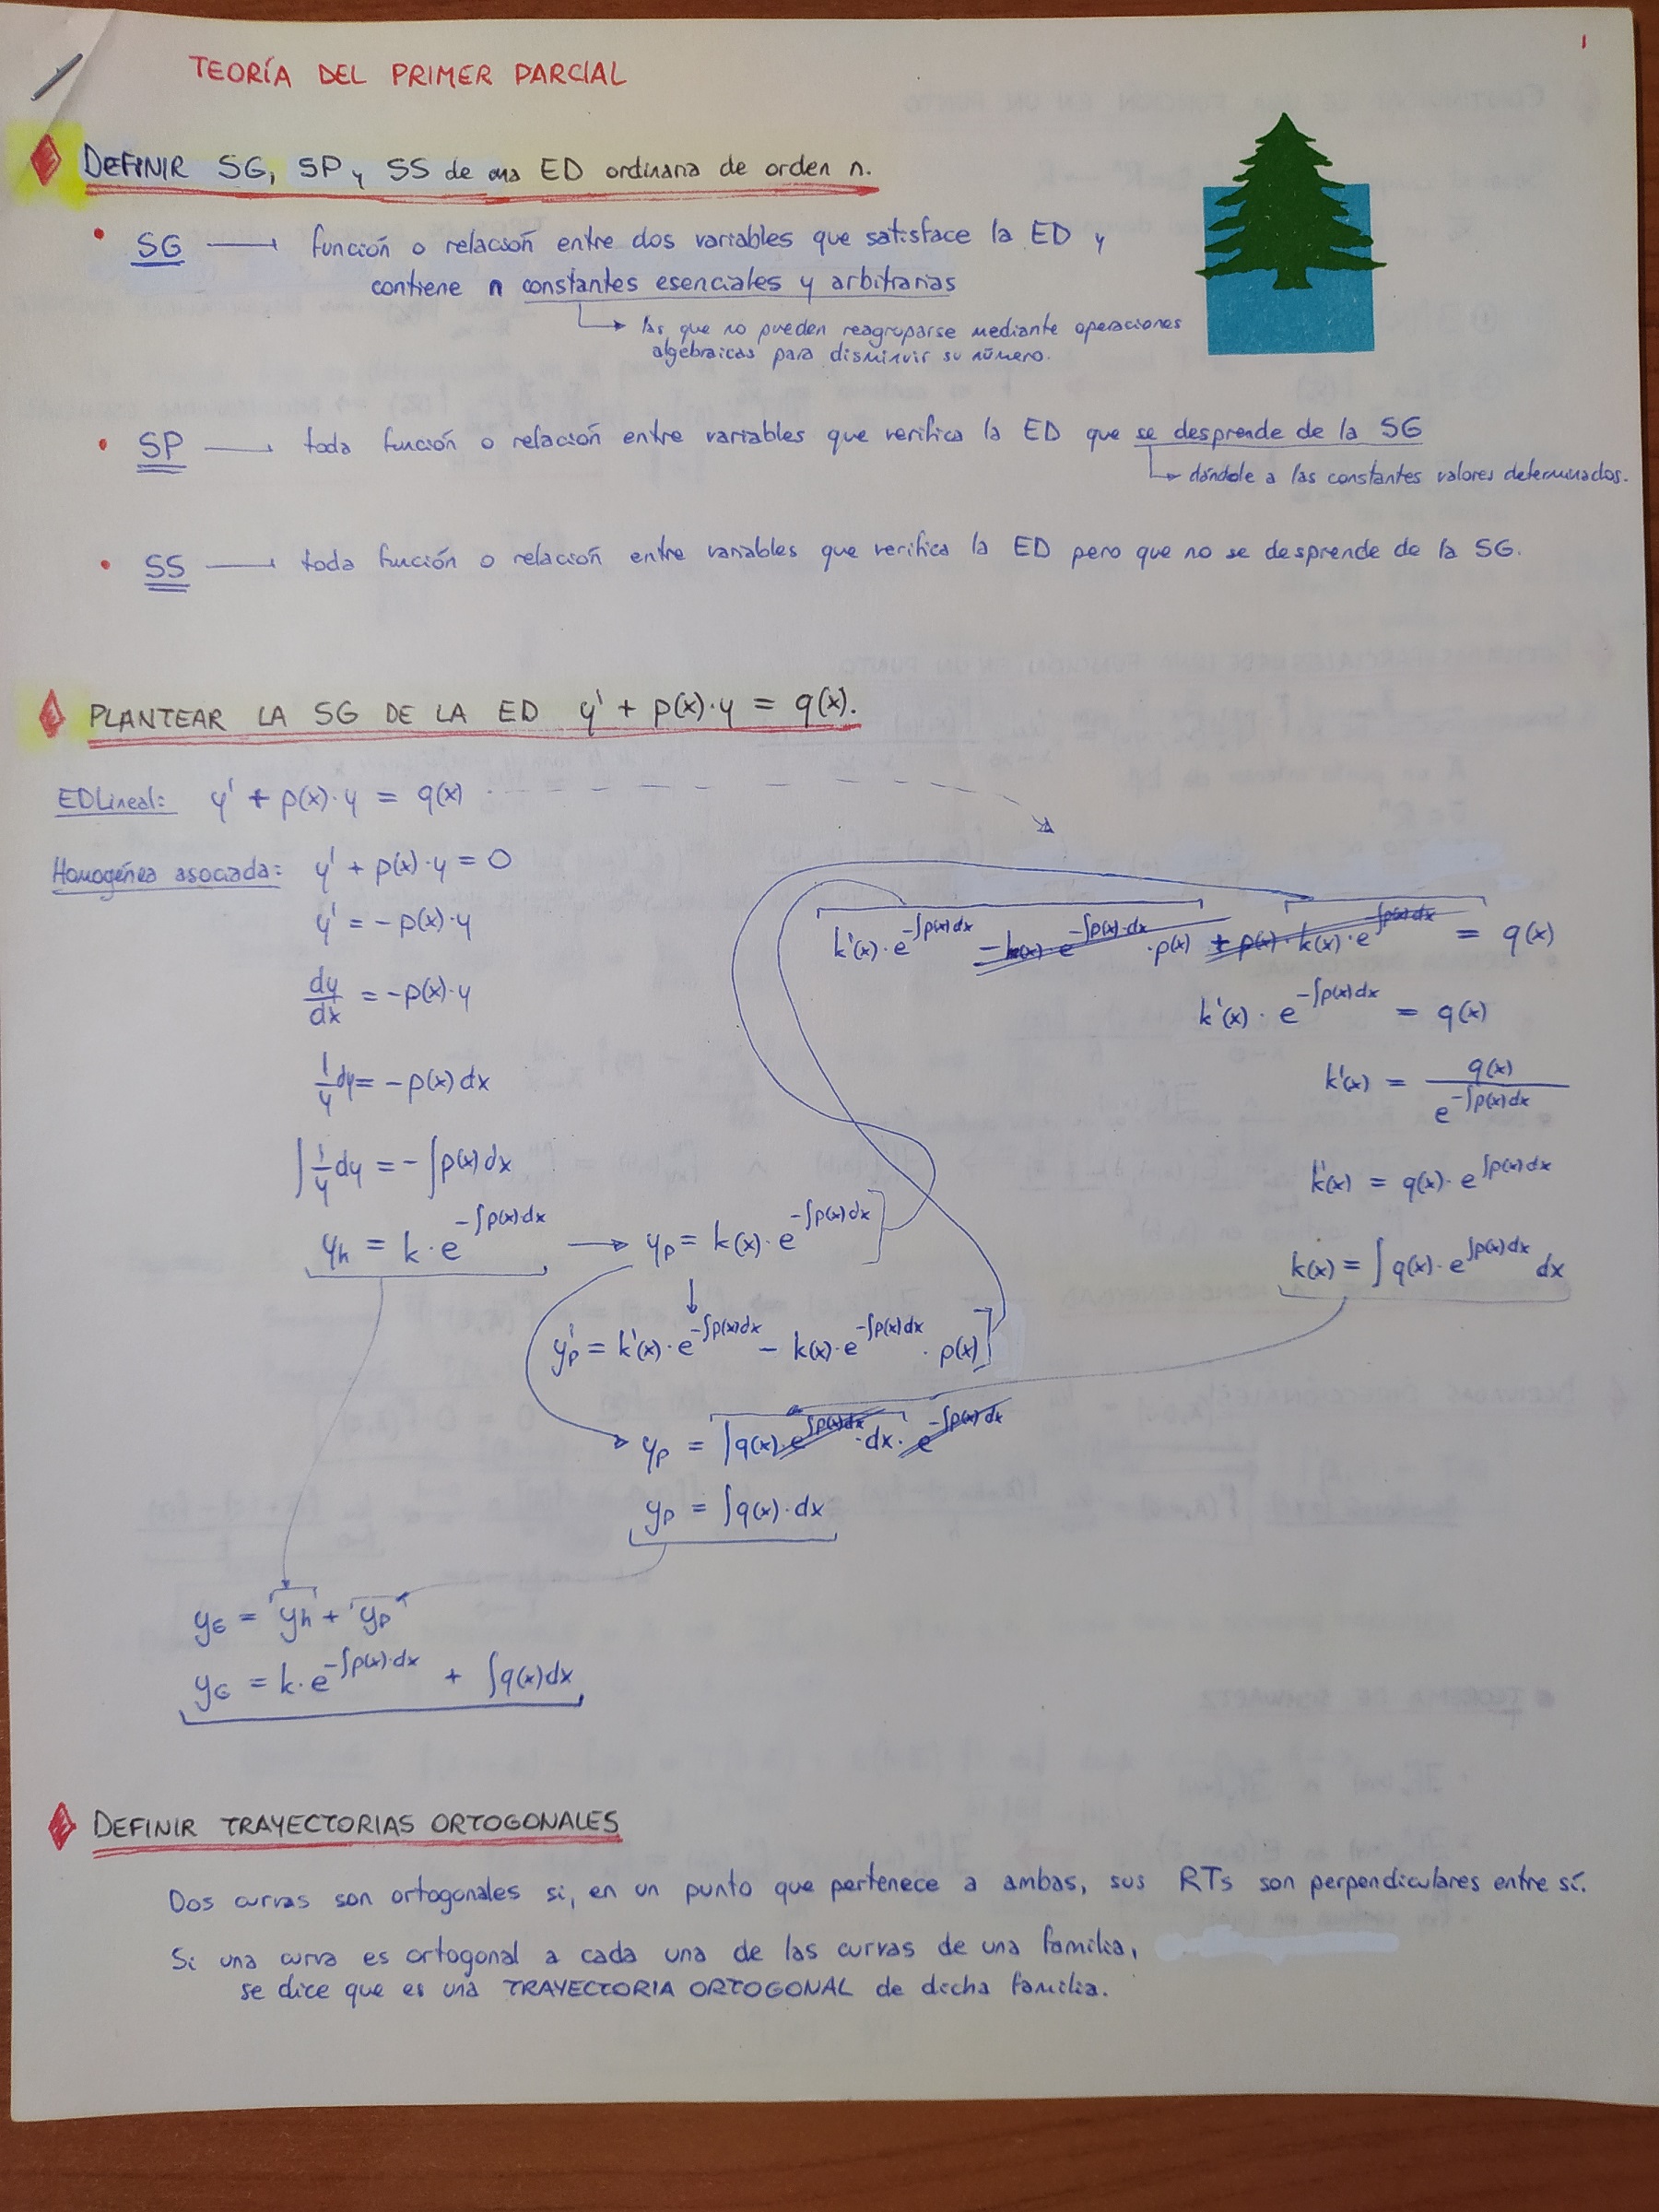 1
TEORÍA DEL PRIMER PARCIAL
DEFINIR SG, SP y SS de una ED ordinaria de orden n.
SG → función o relación entre dos variables que satisface la ED y
contiene n constantes esenciales y arbitrarias
→ las que no pueden reagruparse mediante operaciones
algebraicas para disminuir su número.
SP → toda función o relación entre variables que verifica la ED que se desprende de la SG
→ dándole a las constantes valores determinados.
SS → toda función o relación entre variables que verifica la ED pero que no se desprende de la SG.
PLANTEAR LA SG DE LA ED y' + p(x)·y = q(x).
EDLineal: y' + p(x)·y = q(x)
Homogénea asociada: y' + p(x)·y = 0
y' = -p(x)·y
dy/dx = -p(x)·y
1/y dy = -p(x) dx
∫ 1/y dy = -∫p(x) dx
yh = k·e^(-∫p(x)dx) → yp = k(x)·e^(-∫p(x)dx)
y'p = k'(x)·e^(-∫p(x)dx) - k(x)·e^(-∫p(x)dx) · p(x)
k'(x)·e^(-∫p(x)dx) - k(x)·e^(-∫p(x)·dx) ·p(x) + p(x)·k(x)·e^(-∫p(x)dx) = q(x)
k'(x)·e^(-∫p(x)dx) = q(x)
k'(x) = q(x) / e^(-∫p(x)dx)
k'(x) = q(x)·e^(∫p(x)dx)
k(x) = ∫q(x)·e^(∫p(x)dx) dx
yp = ∫q(x)·e^(∫p(x)dx)·dx·e^(-∫p(x)dx)
yp = ∫q(x)·dx
yG = yh + yp
yG = k·e^(-∫p(x)·dx) + ∫q(x)dx
DEFINIR TRAYECTORIAS ORTOGONALES
Dos curvas son ortogonales si, en un punto que pertenece a ambas, sus RTs son perpendiculares entre sí.
Si una curva es ortogonal a cada una de las curvas de una familia,
se dice que es una TRAYECTORIA ORTOGONAL de dicha familia.